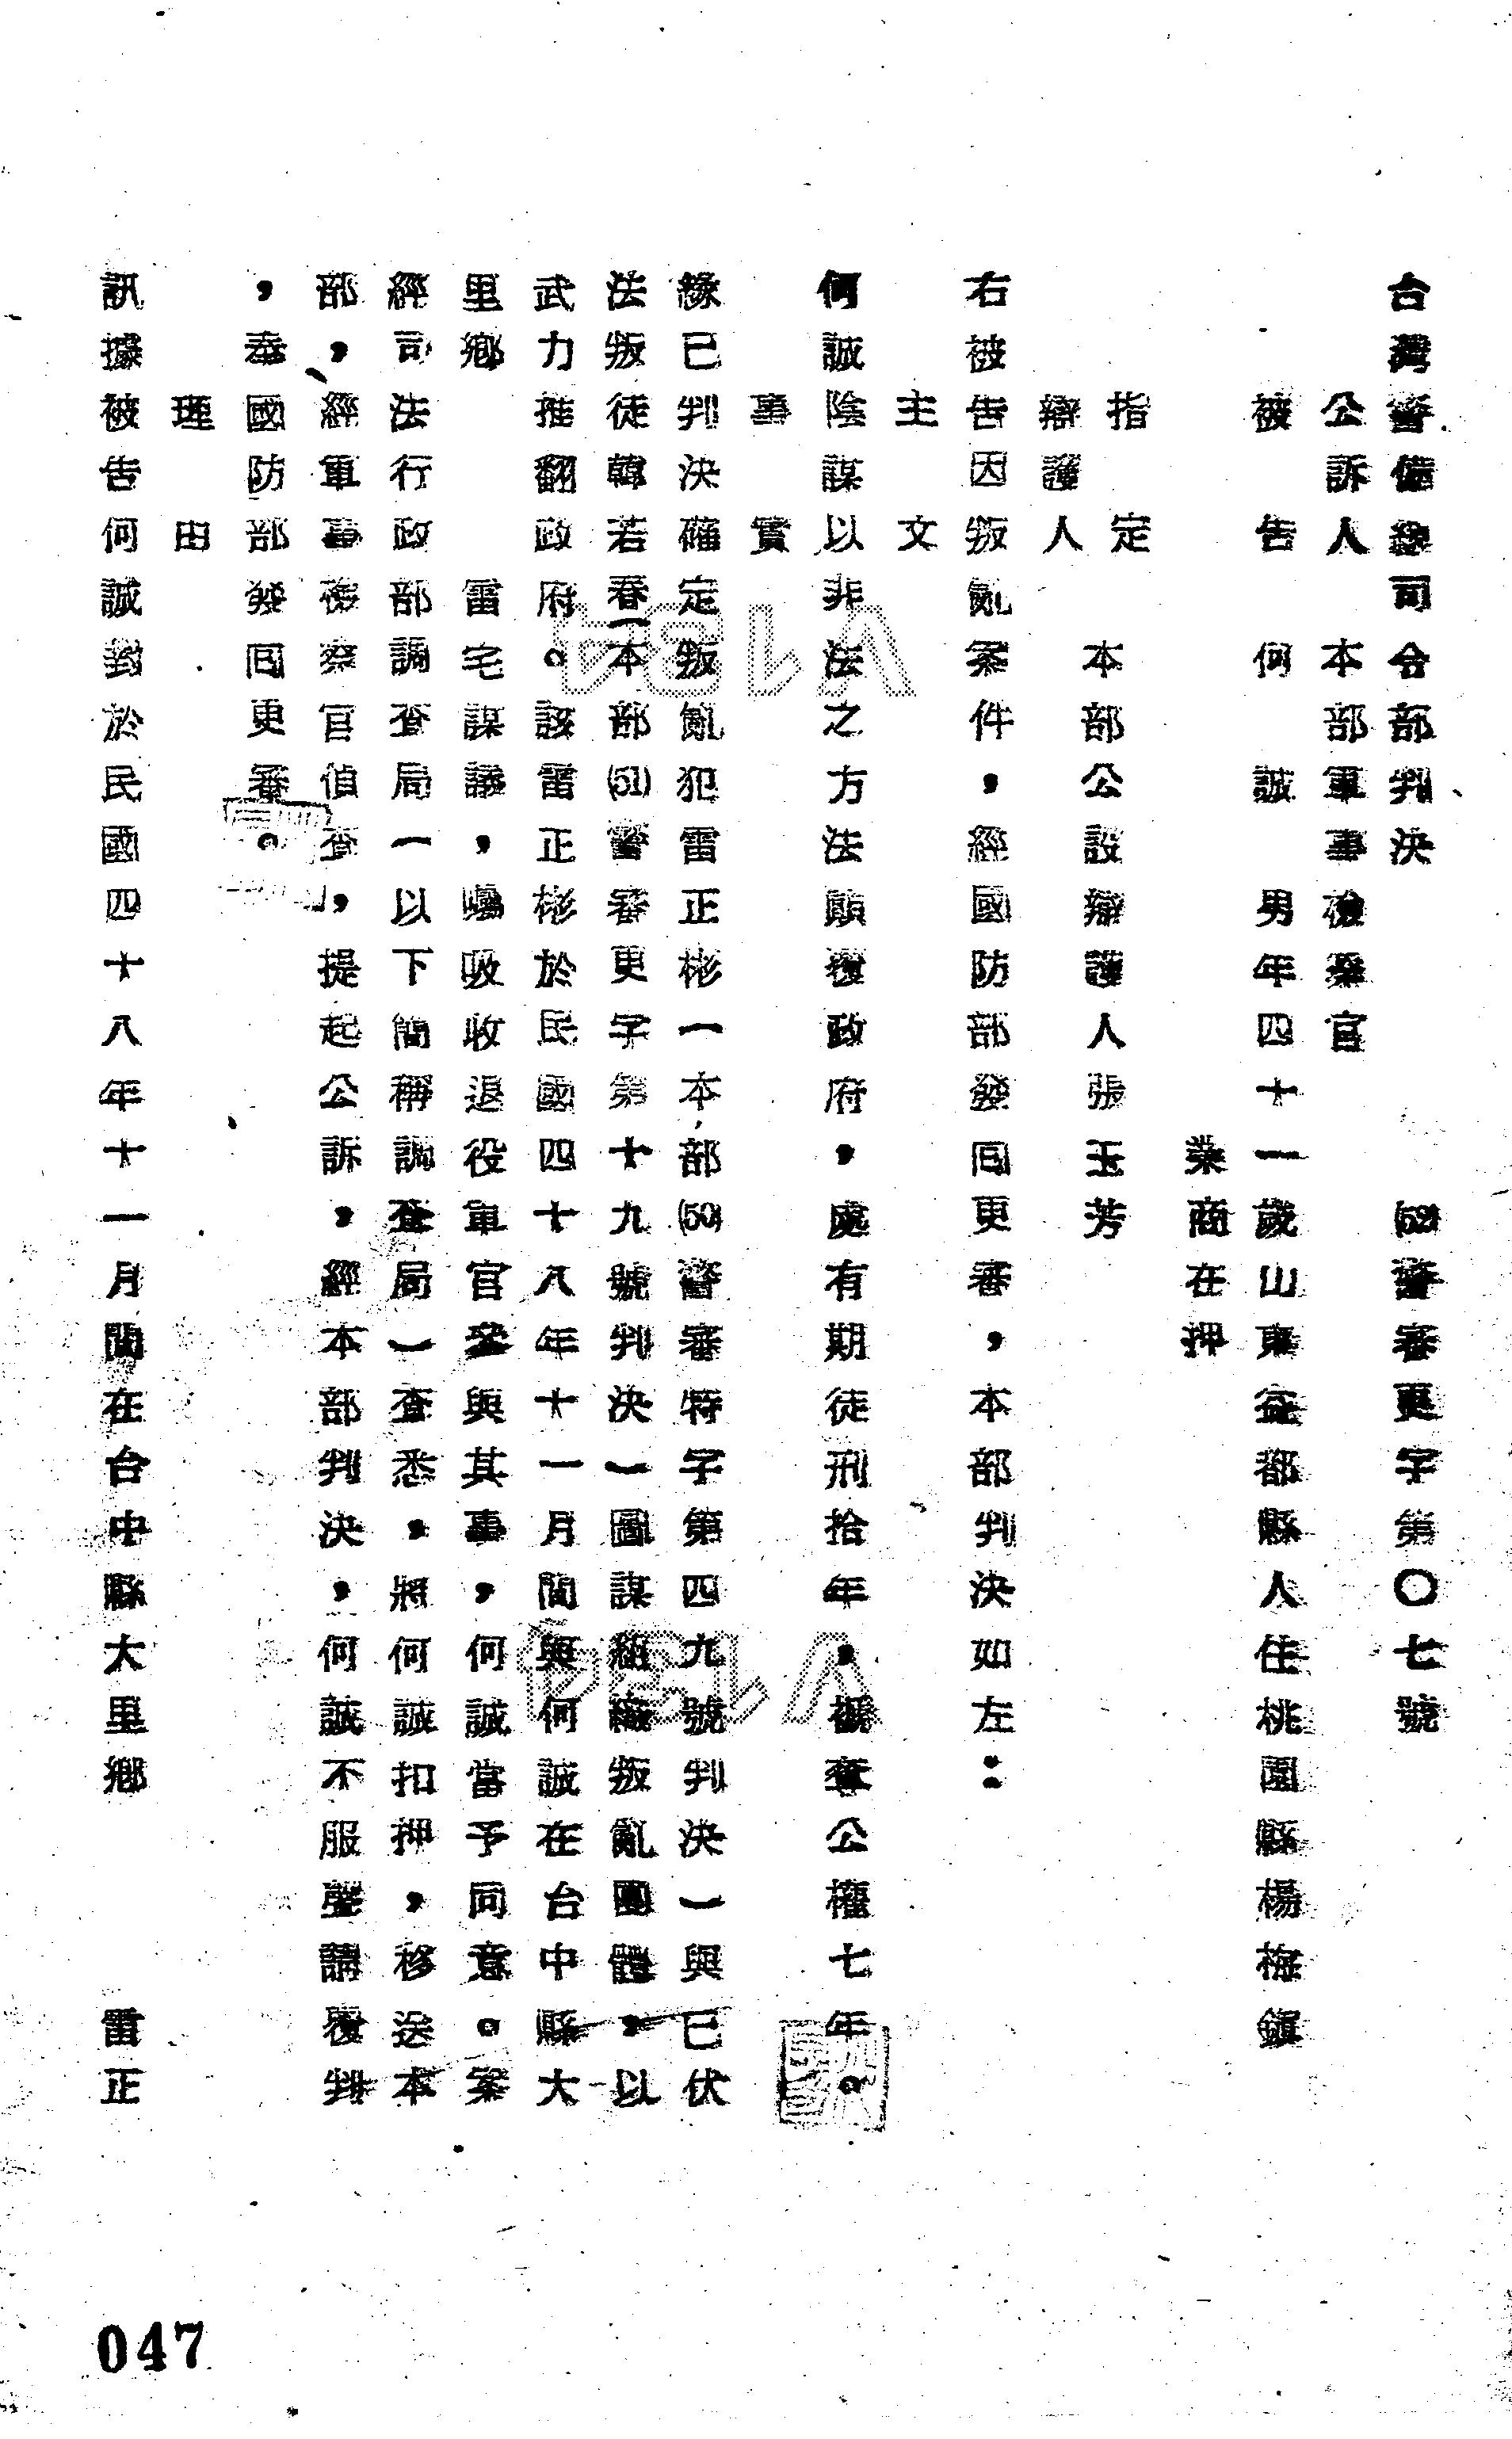 台灣警備總司令部判決　(52)警審更字第〇七號
公訴人　本部軍事檢察官
被告　何誠　男年四十一歲山東益都縣人住桃園縣楊梅鎮
業商在押
指定
辯護人　本部公設辯護人張玉芳
右被告因叛亂案件，經國防部發回更審，本部判決如左：
主文
何誠陰謀以非法之方法顛覆政府，處有期徒刑拾年，褫奪公權七年。
事實
緣已判決確定叛亂犯雷正彬（本部(50)警審特字第四九號判決）與已伏
法叛徒韓若春（本部(51)警審更字第十九號判決）圖謀組織叛亂團體，以
武力推翻政府。該雷正彬於民國四十八年十一月間與何誠在台中縣大
里鄉　雷宅謀議，囑吸收退役軍官參與其事，何誠當予同意。案
經司法行政部調查局（以下簡稱調查局）查悉，將何誠扣押，移送本
部，經軍事檢察官偵查，提起公訴，經本部判決，何誠不服聲請覆判
，奉國防部發回更審。
理由
訊據被告何誠對於民國四十八年十一月間在台中縣大里鄉　雷正
047